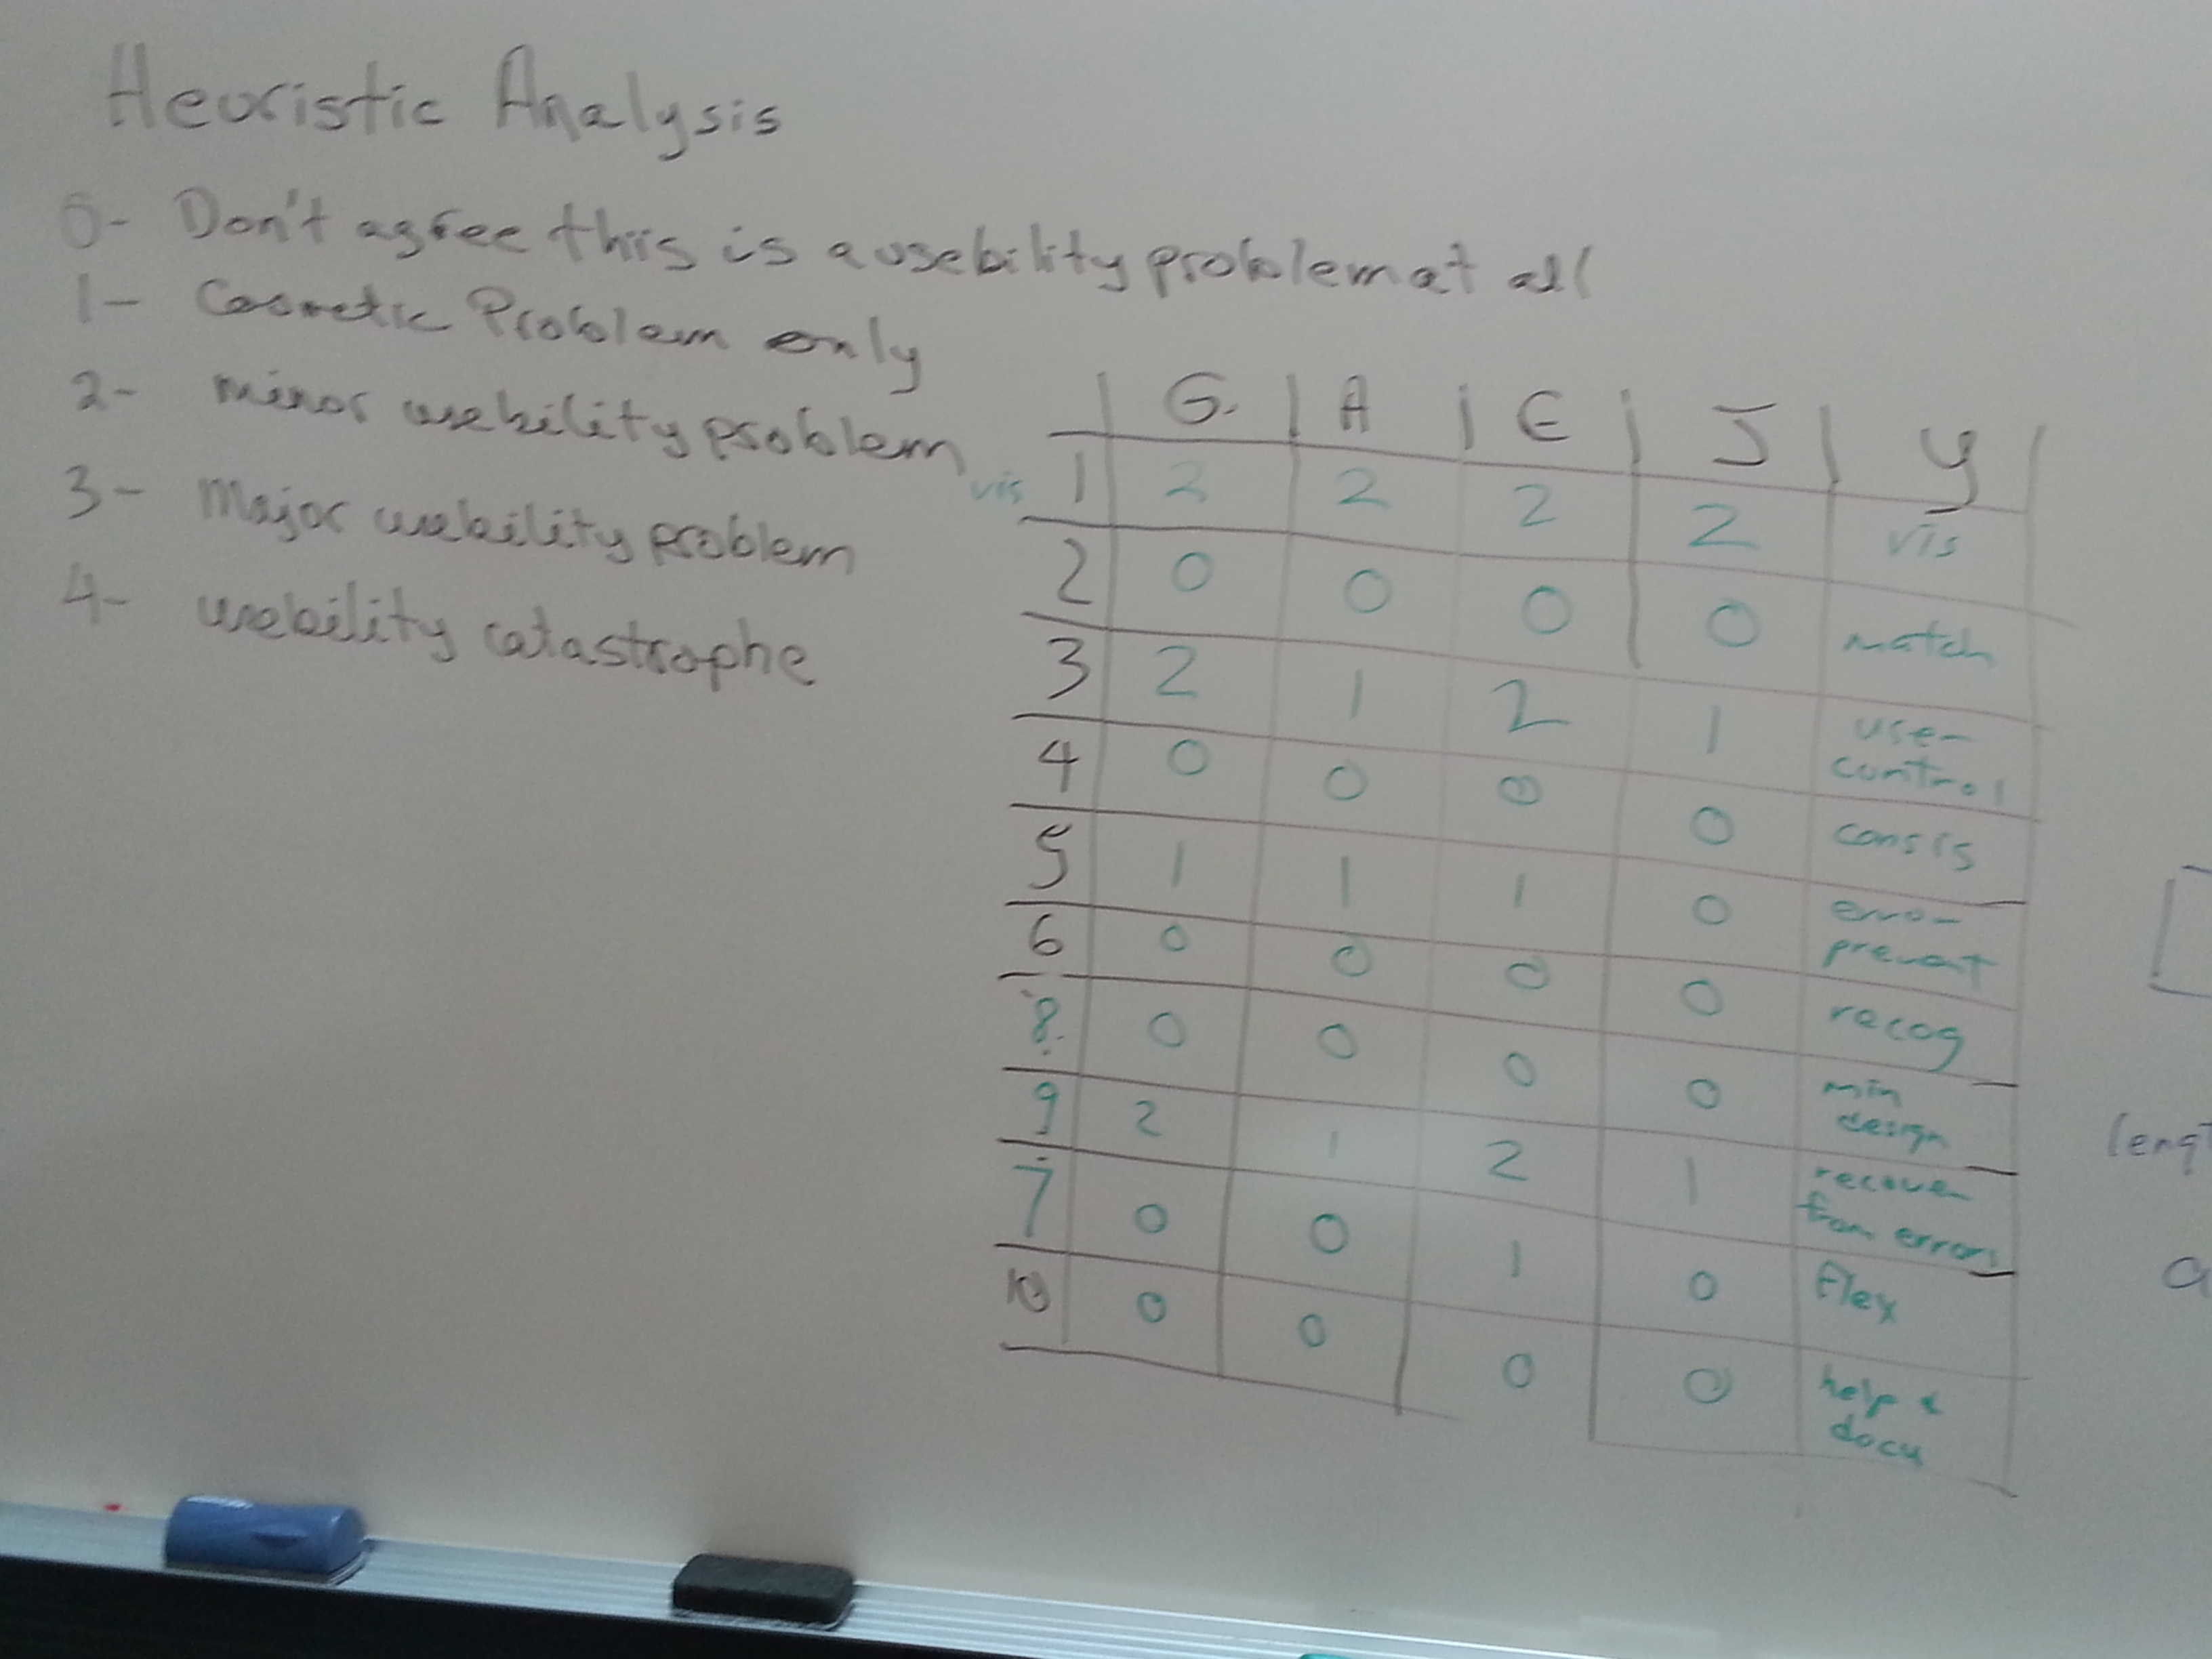 Heuristic Analysis
0- Don't agree this is a usebility problem at all
1- Cosmetic Problem only
2- minor usebility problem
3- Major usebility problem
4- usebility catastrophe
G. A E J Y
vis 1 2 2 2 2 vis
2 0 0 0 0 match
3 2 1 2 1 use-
control
4 0 0 0 0 consis
5 1 1 1 0 erro-
prevent
6 0 0 0 0 recog
8 0 0 0 0 min
design
9 2 1 2 1 recover
from errors
7 0 0 1 0 Flex
10 0 0 0 0 help &
docu